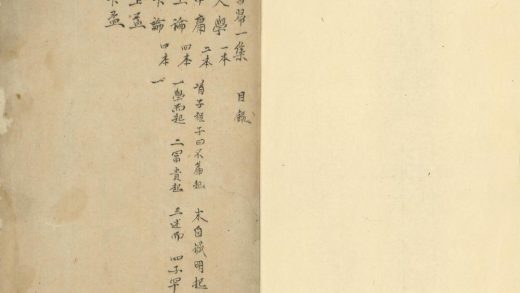 一集 目錄
大學 一本
中庸 二本 首子程子曰不篇起 末自誠明起
上論 四本 一學而起 二富貴起 三述而 四子罕
下論 四本 一
上孟
下孟